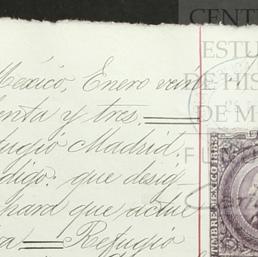 CENT
ESTU
DE HIS
DE M
FU
México, Enero vein
enta y tres.
fugio Madrid,
digo: que desig-
chard que actue
Refugio
TIMBRE MEXICO